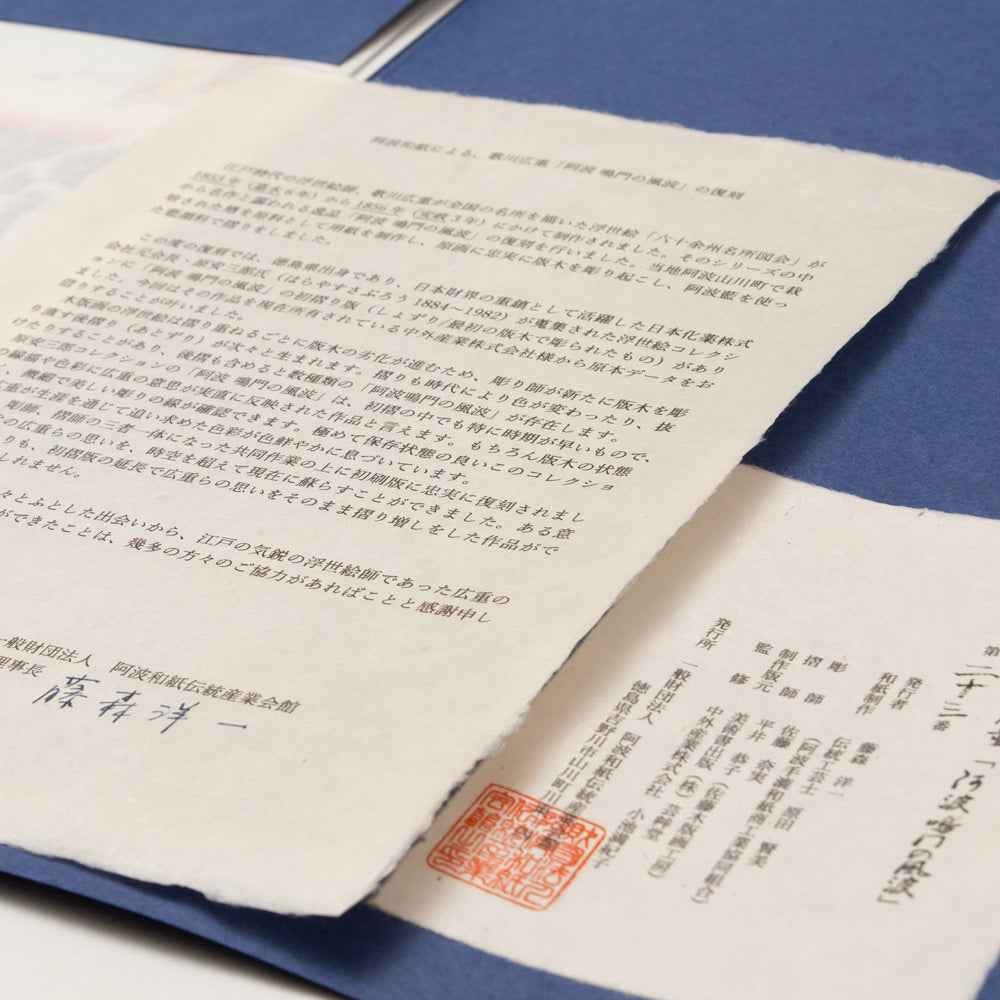 阿波和紙による、歌川広重「阿波 鳴門の風波」の復刻
江戸時代の浮世絵師、歌川広重が全国の名所を描いた浮世絵「六十余州名所図会」が
1853年（嘉永6年）から1856年（安政3年）にかけて制作されました。そのシリーズの中
から名作と謳われる逸品「阿波 鳴門の風波」の復刻を行いました。当地阿波山川町で栽
培された楮を原料として用紙を制作し、原画に忠実に版木を彫り起こし、阿波藍を使っ
た藍顔料で摺りをしました。
この度の復刻では、徳島県出身であり、日本財界の重鎮として活躍した日本化薬株式
会社元会長・原安三郎氏（はらやすさぶろう 1884〜1982）が蒐集された浮世絵コレクシ
ョンに「阿波 鳴門の風波」の初摺り版（しょずり/最初の版木で彫られたもの）があり
ました。今回はその作品を現在所有されている中外産業株式会社様から原本データをお
借りすることが叶いました。
木版画の浮世絵は摺り重ねるごとに版木の劣化が進むため、彫り師が新たに版木を彫
り直す後摺り（あとずり）が次々と生まれます。摺りも時代により色が変わったり、抜
けたりすることがあり、後摺も含めると数種類の「阿波鳴門の風波」が存在します。
原安三郎コレクションの「阿波 鳴門の風波」は、初摺の中でも特に時期が早いもので、
の線描や色彩に広重の意思が実直に反映された作品と言えます。もちろん版木の状態
、繊細で美しい彫りの線が確認できます。極めて保存状態の良いこのコレクショ
広重が生涯を通じて追い求めた色彩が色鮮やかに息づいています。
、彫師、摺師の三者一体になった共同作業の上に初刷版に忠実に復刻されまし
の広重らの思いを、時空を超えて現在に蘇らすことができました。ある意
りも、初摺版の延長で広重らの思いをそのまま摺り増しをした作品がで
しれません。
々とふとした出会いから、江戸の気鋭の浮世絵師であった広重の
ができたことは、幾多の方々のご協力があればことと感謝申し
一般財団法人 阿波和紙伝統産業会館
理事長
藤森洋一
第二十三番
「阿波鳴門の風波」
発行者 藤森 洋一
和紙制作 伝統工芸士 原田
（阿波手漉和紙商工業協同組合）
彫 師 佐藤
摺 師 平井 恭子（佐藤木版画工房）
制作版元 美術書出版（株）芸艸堂
監 修 中外産業株式会社 小池満紀子
発行所 一般財団法人 阿波和紙伝統産
徳島県吉野川市山川町川